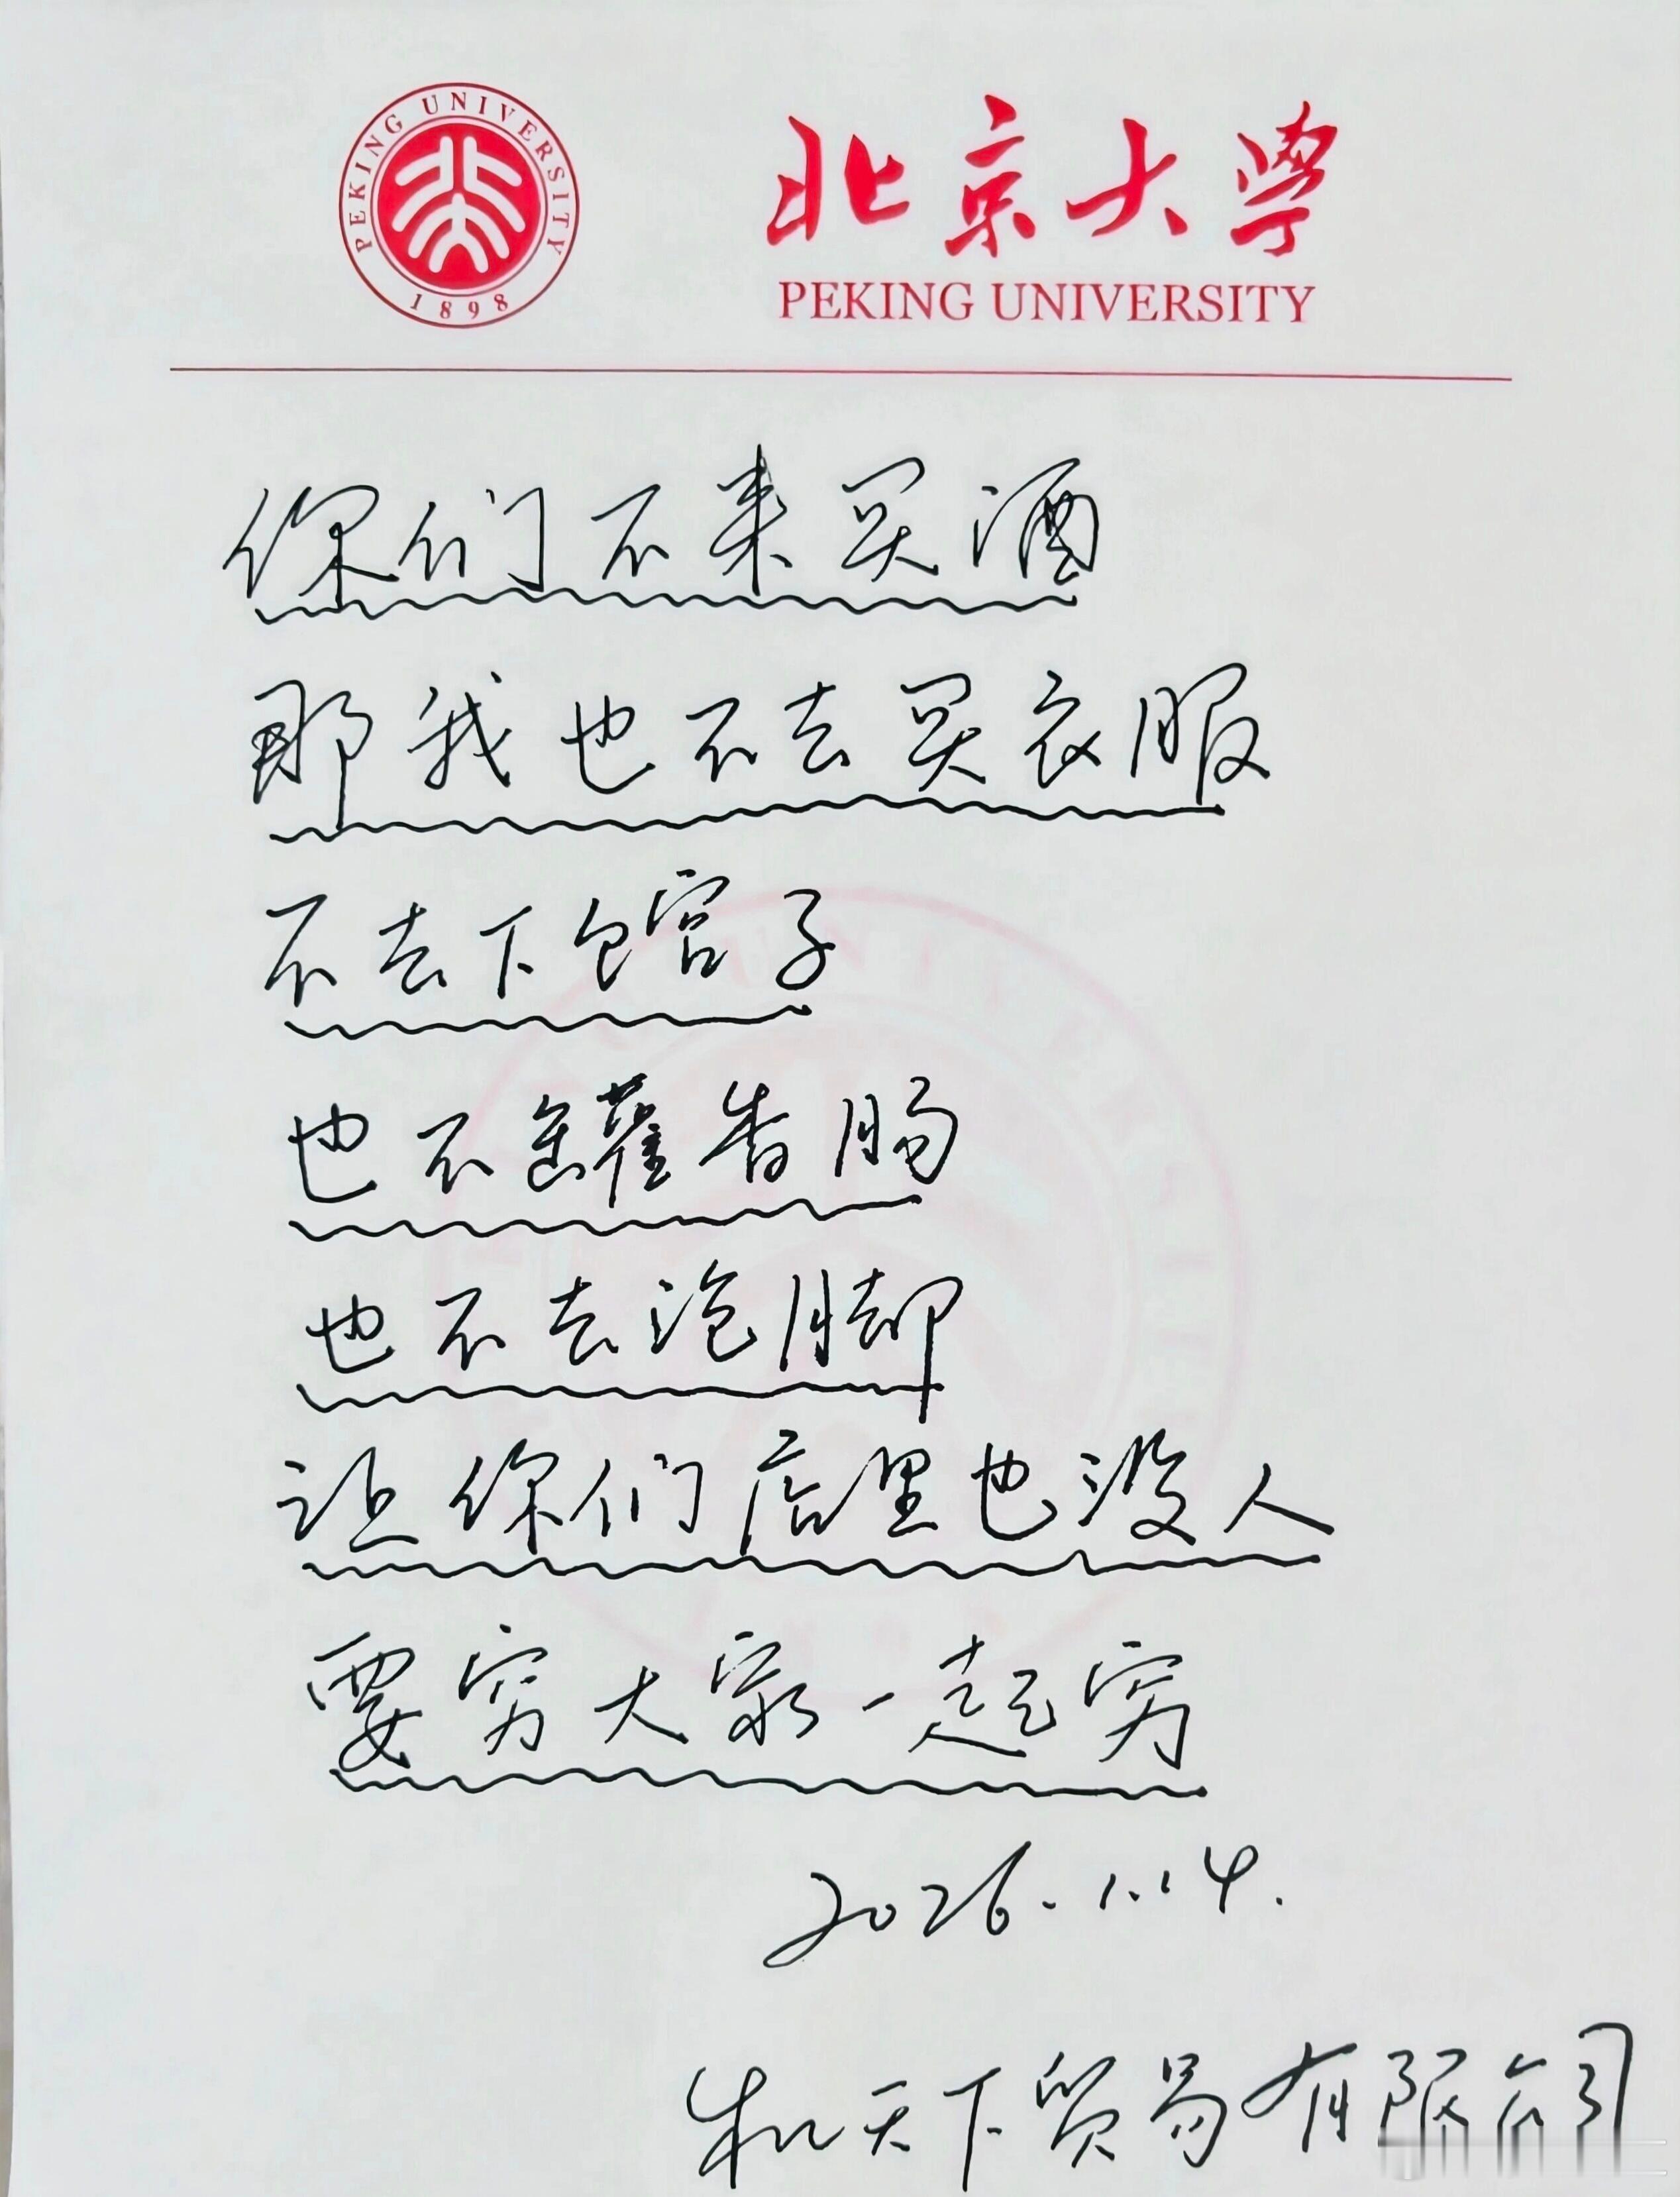 PEKING UNIVERSITY
1898
北京大学
PEKING UNIVERSITY
你们不来买酒
那我也不去买衣服
不去下馆子
也不罐香肠
也不去泡脚
让你们店里也没人
要穷大家一起穷
2026.1.14.
天下贸易有限公司